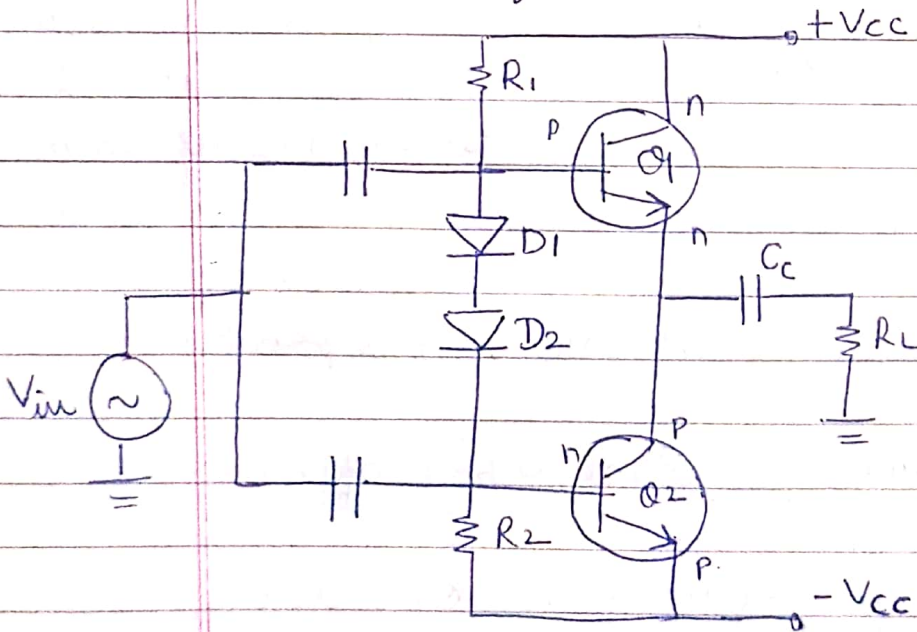 +Vcc
R1
n
p
Q1
D1
n
Cc
D2
RL
Vin
~
p
n
Q2
R2
p.
-Vcc